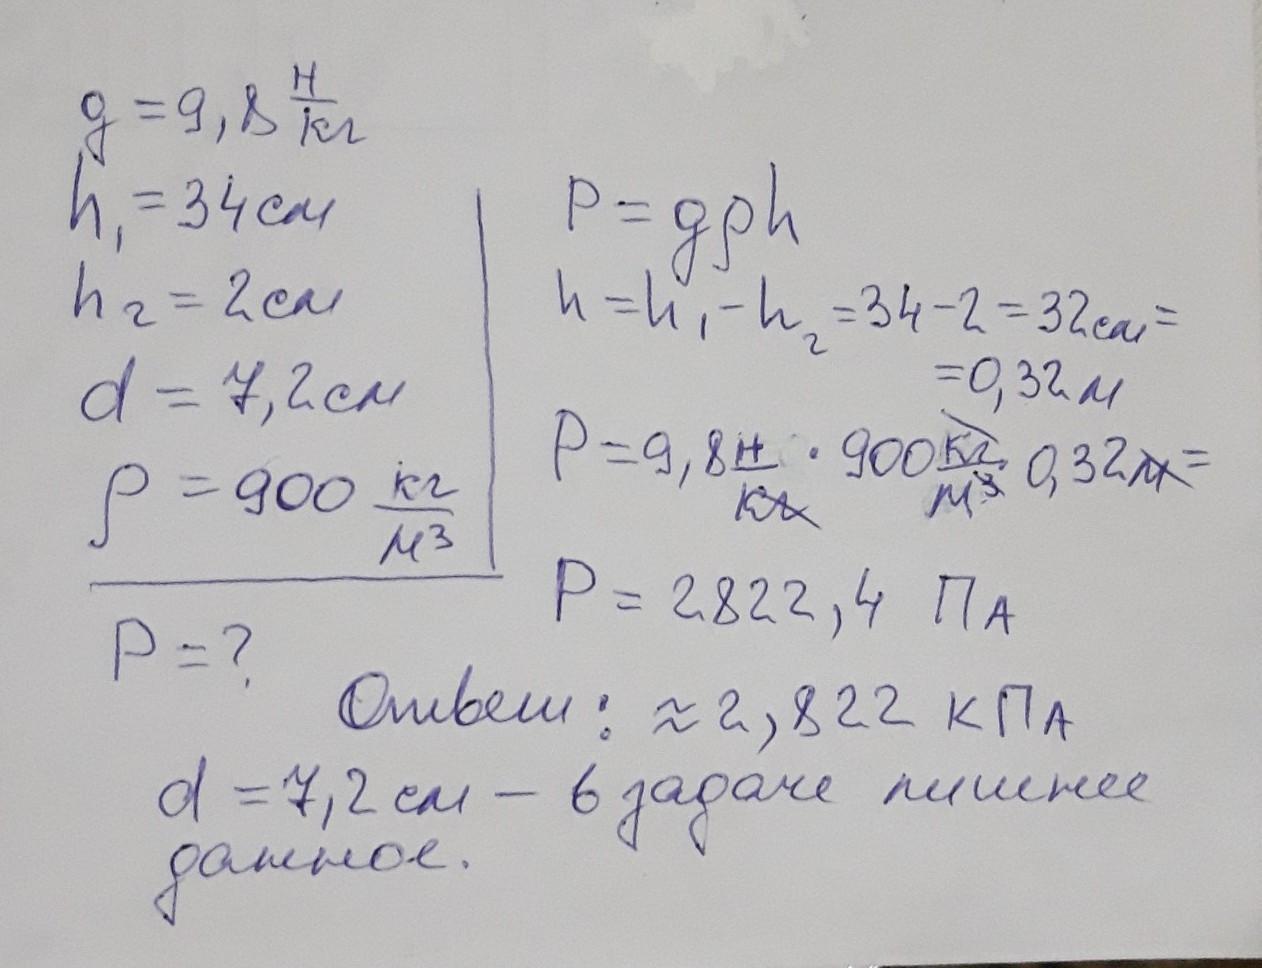 g = 9,8 Н/кг
h₁ = 34 см
h₂ = 2 см
d = 7,2 см
ρ = 900 кг/м³
P = ?
P = gρh
h = h₁ - h₂ = 34 - 2 = 32 см =
= 0,32 м
P = 9,8 Н/кг · 900 кг/м³ · 0,32 м =
P = 2822,4 ПА
Ответ: ≈ 2,822 кПА
d = 7,2 см – в задаче лишнее
данное.